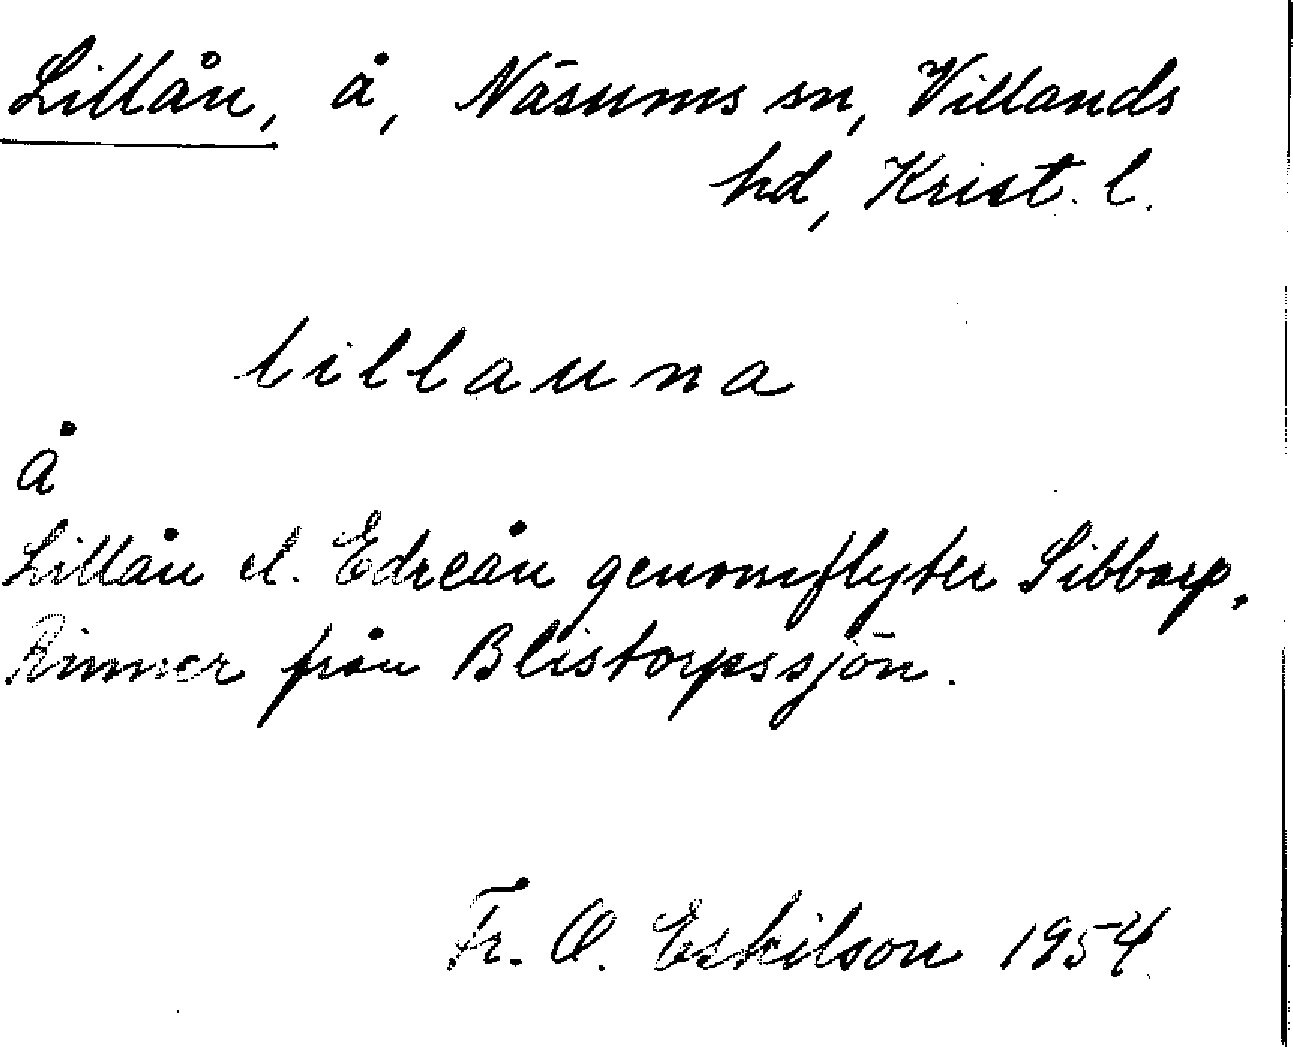 Lillån, å, Näsums sn, Villands
hd, Krist. l.
lillauna
å
Lillån el. Edreån genomflyter Sibbarp.
Rinner från Blistorpssjön.
Fr. O. Eskilson 1954